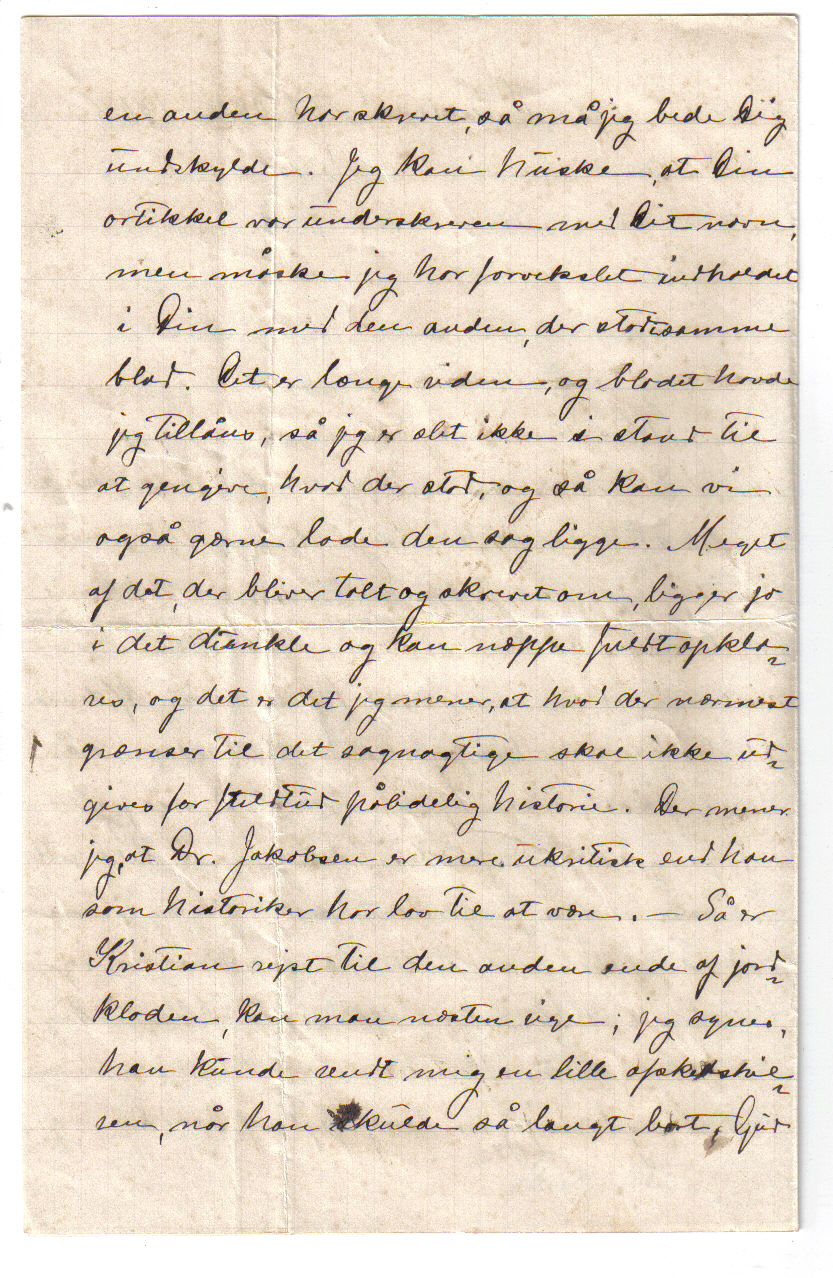 en anden har skrevet, så må jeg bede Dig
undskylde. Jeg kan huske, at Din
artikkel var underskreven med Dit navn,
men måske jeg har forvekslet indholdet
i Din med den anden, der stod i samme
blad. Det er længe siden, og bladet havde
jeg tillåns, så jeg er slet ikke i stand til
at gengive, hvad der stod, og så kan vi
også gærne lade den sag ligge. Meget
af det, der bliver talt og skrevet om, ligger jo
i det dunkle og kan næppe fuldt opkla-
res, og det er det jeg mener, at hvad der nærmest
grænser til det sagnagtige skal ikke ud-
gives for fuldtud pålidelig historie. Der mener
jeg, at Dr. Jakobsen er mere ukritisk end han
som historiker har lov til at være. — Så er
Kristian rejst til den anden ende af jord-
kloden, kan man næsten sige; jeg synes,
han kunde sendt mig en lille afskedshil-
sen, når han skulde så langt bort, Gud